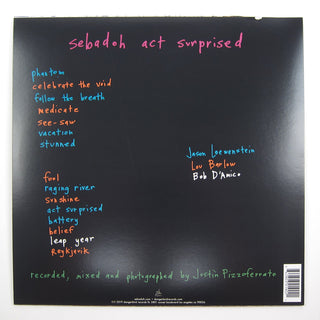 sebadoh act surprised
phantom
celebrate the void
follow the breath
medicate
see-saw
vacation
stunned
fool
raging river
sunshine
act surprised
battery
belief
leap year
Reykjavik
Jason Loewenstein
Lou Barlow
Bob D'Amico
recorded, mixed and photographed by Justin Pizzoferrato